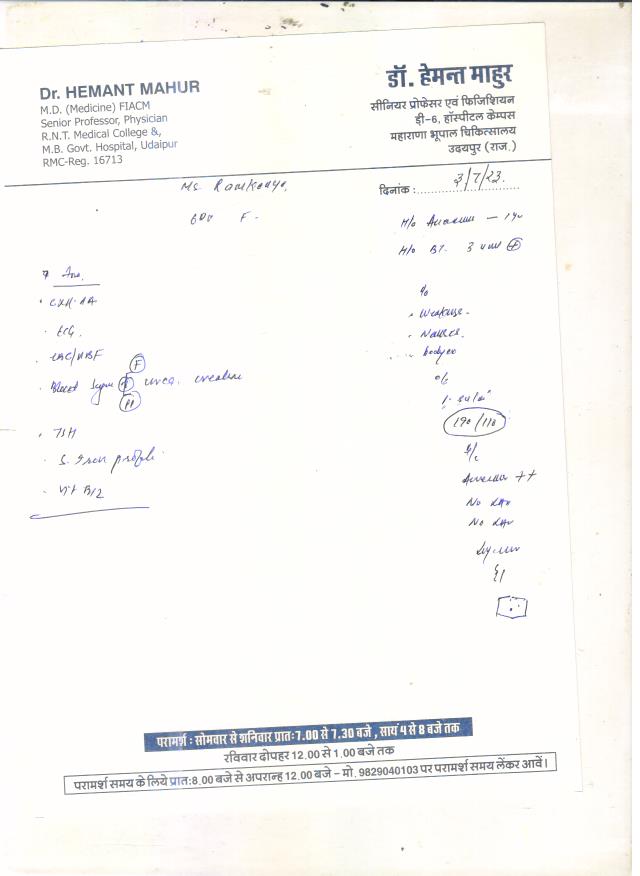 Dr. HEMANT MAHUR
M.D. (Medicine) FIACM
Senior Professor, Physician
R.N.T. Medical College &,
M.B. Govt. Hospital, Udaipur
RMC-Reg. 16713
डॉ. हेमन्त माहुर
सीनियर प्रोफेसर एवं फिजिशियन
डी-6, हॉस्पीटल केम्पस
महाराणा भूपाल चिकित्सालय
उदयपुर (राज.)
दिनांक : 3/7/23.
Ms.
F.
H/o
H/o BT. 3 unit +
CXR-PA
ECG.
Blood Sugar F PP urea. creatine
TSH
S. Iron profile
Vit B12
c/o
Weakness.
Nausea.
o/e
190/110
Anaemia ++
No
No
परामर्श : सोमवार से शनिवार प्रातः7.00 से 7.30 बजे , सायं 4 से 8 बजे तक
रविवार दोपहर 12.00 से 1.00 बजे तक
परामर्श समय के लिये प्रातः8.00 बजे से अपरान्ह 12.00 बजे – मो. 9829040103 पर परामर्श समय लेंकर आवें।